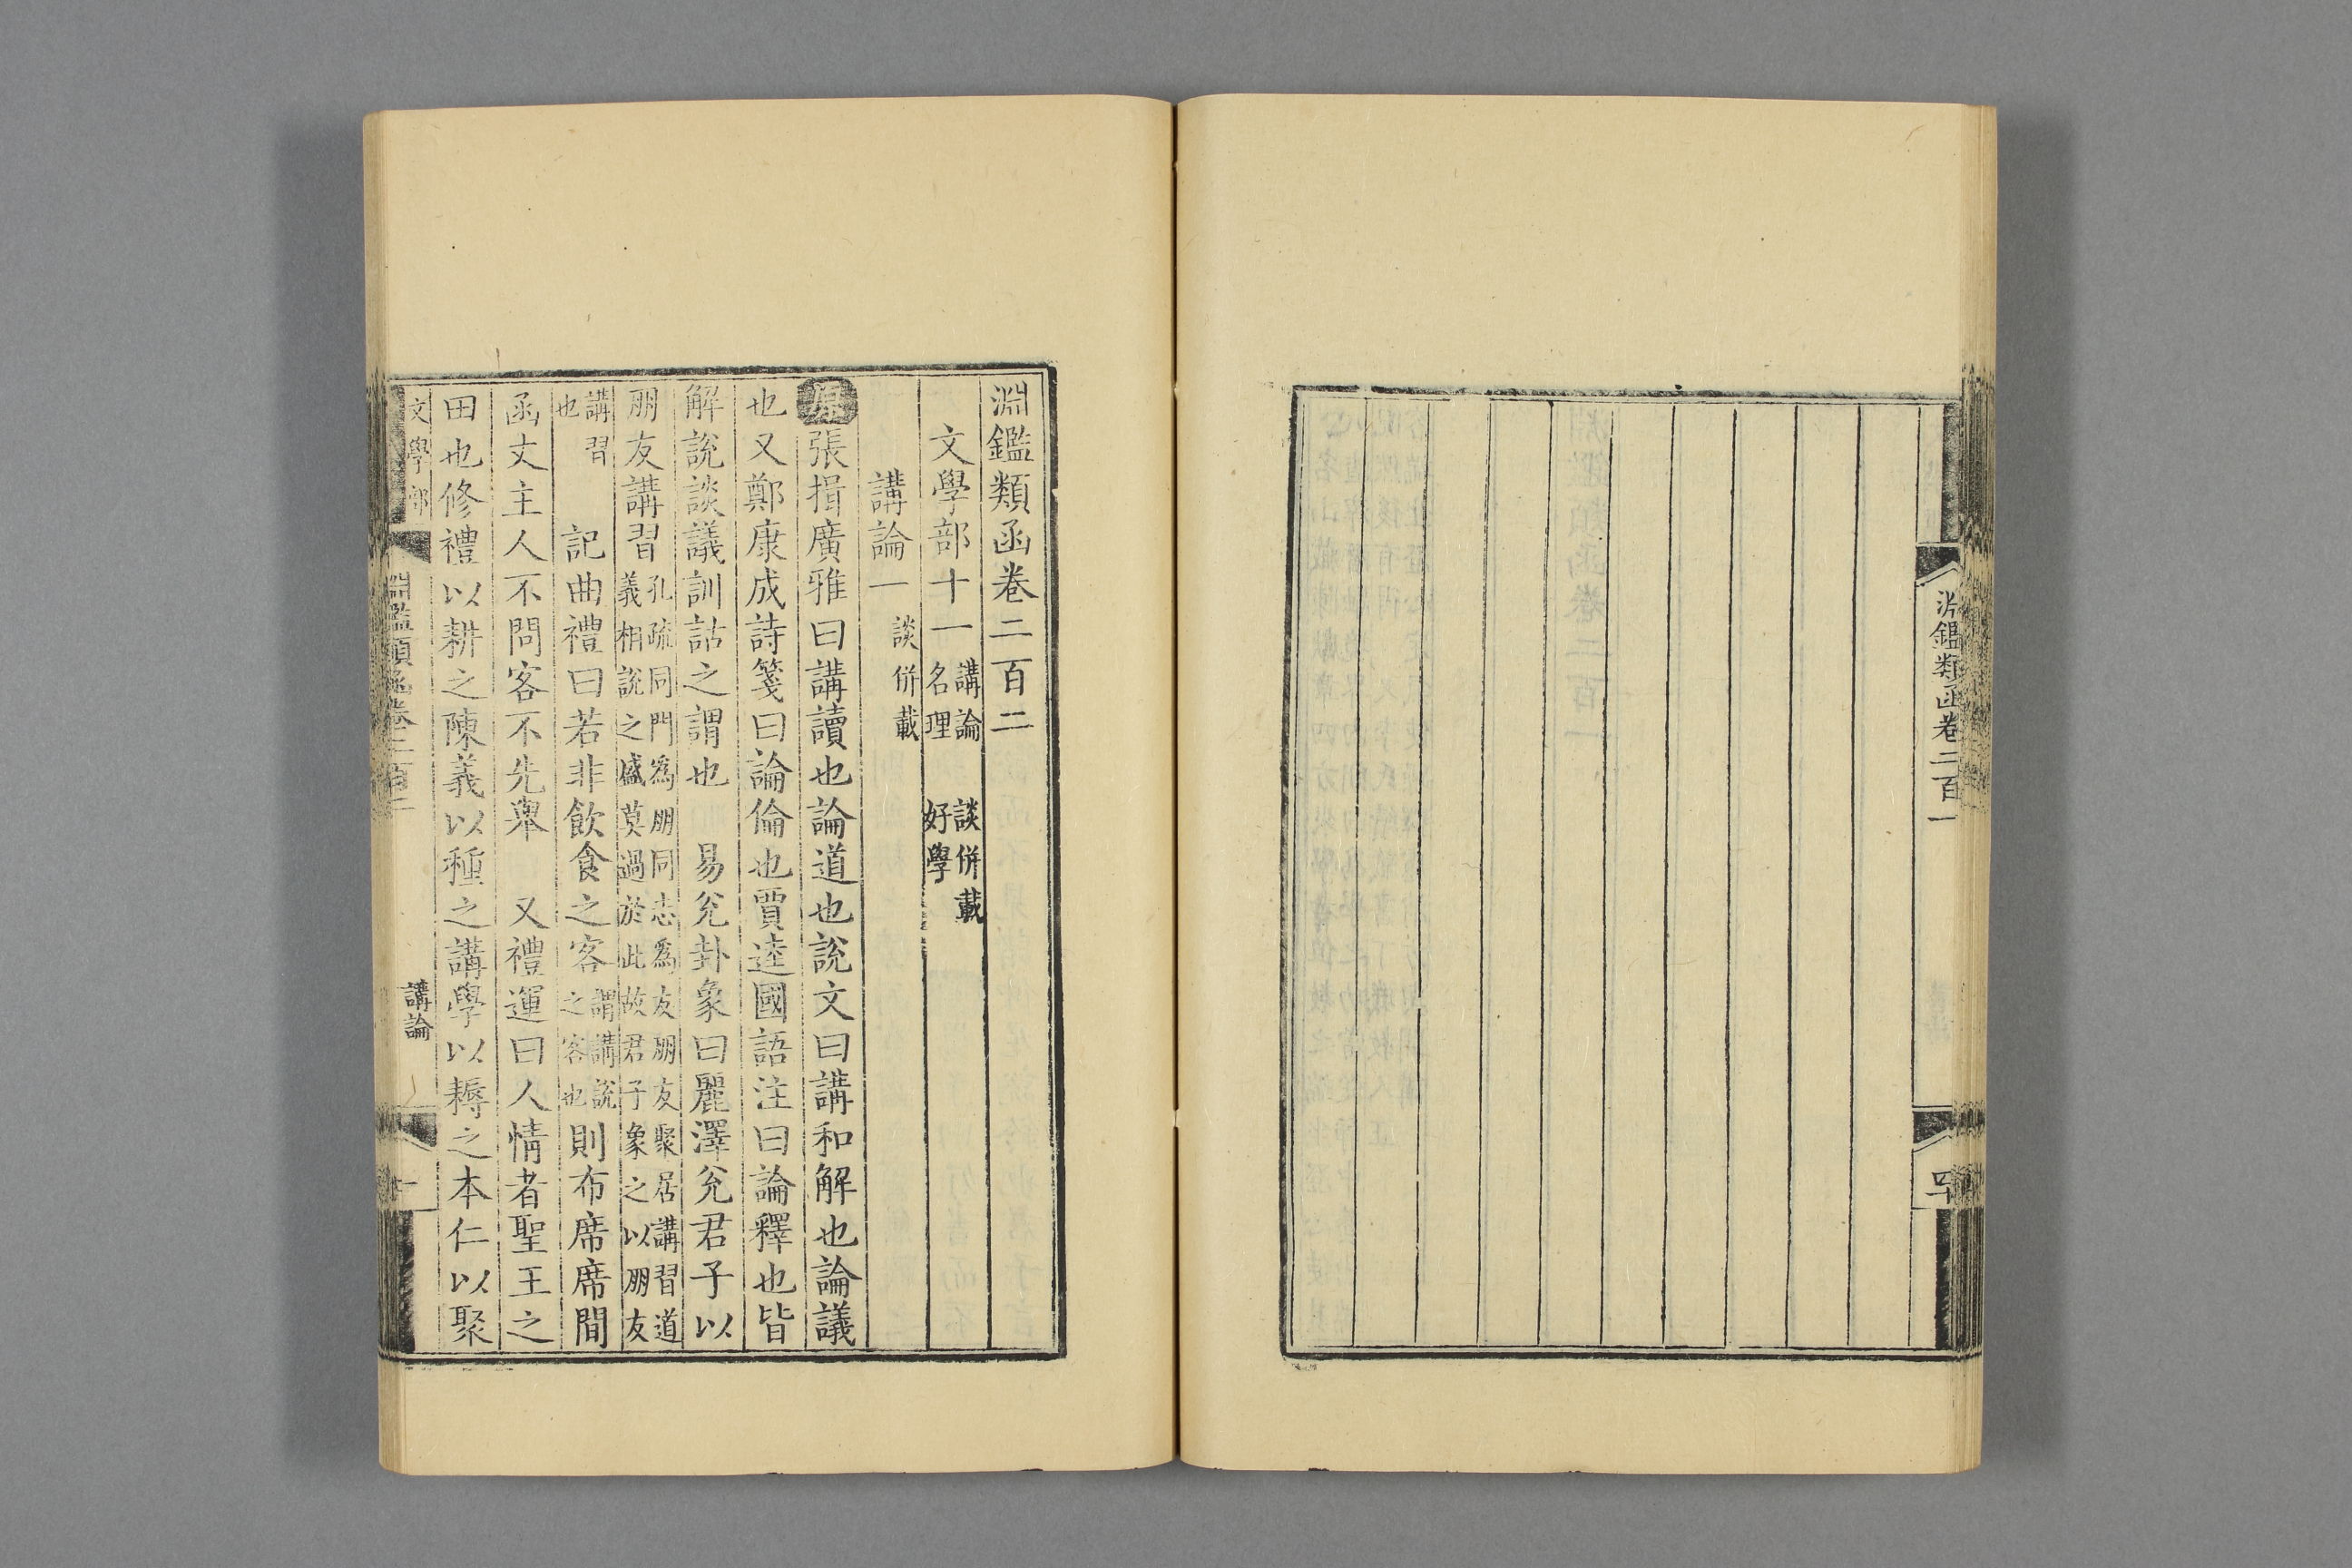 淵鑑類函卷二百一
四
淵鑑類函卷二百二
文學部十一 講論 談併載 名理 好學
講論一 談併載
原 張揖廣雅曰講讀也論道也說文曰講和解也論議
也又鄭康成詩箋曰論倫也賈逵國語注曰論釋也皆
解說談議訓詁之謂也 易兊卦象曰麗澤兊君子以
朋友講習 孔疏同門為朋同志為友朋友聚居講習道義相説之盛莫過於此故君子象之以朋友
講習也 記曲禮曰若非飲食之客 謂講説之客也 則布席席間
函丈主人不問客不先舉 又禮運曰人情者聖王之
田也修禮以耕之陳義以種之講學以耨之本仁以聚
文學部
淵鑑類函卷二百二
講論
一